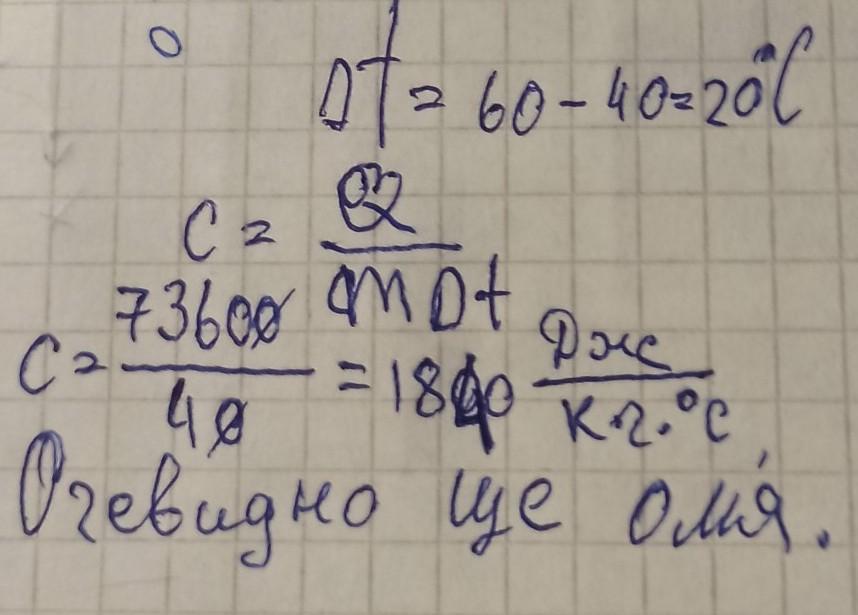 Dt = 60 - 40 = 20°C
C = Q / mDt
C = 73600 / 40 = 1840 Дж / кг·°C
Очевидно ще олія.